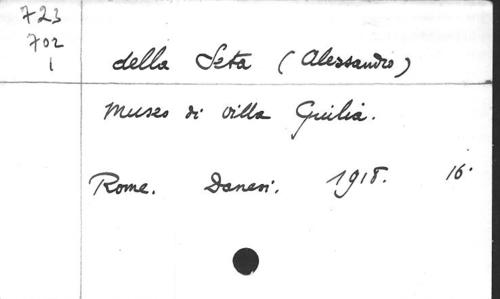 723
702
1
della Seta (Alessandro)
Museo di Villa Giulia.
Rome. Danesi. 1918. 16°